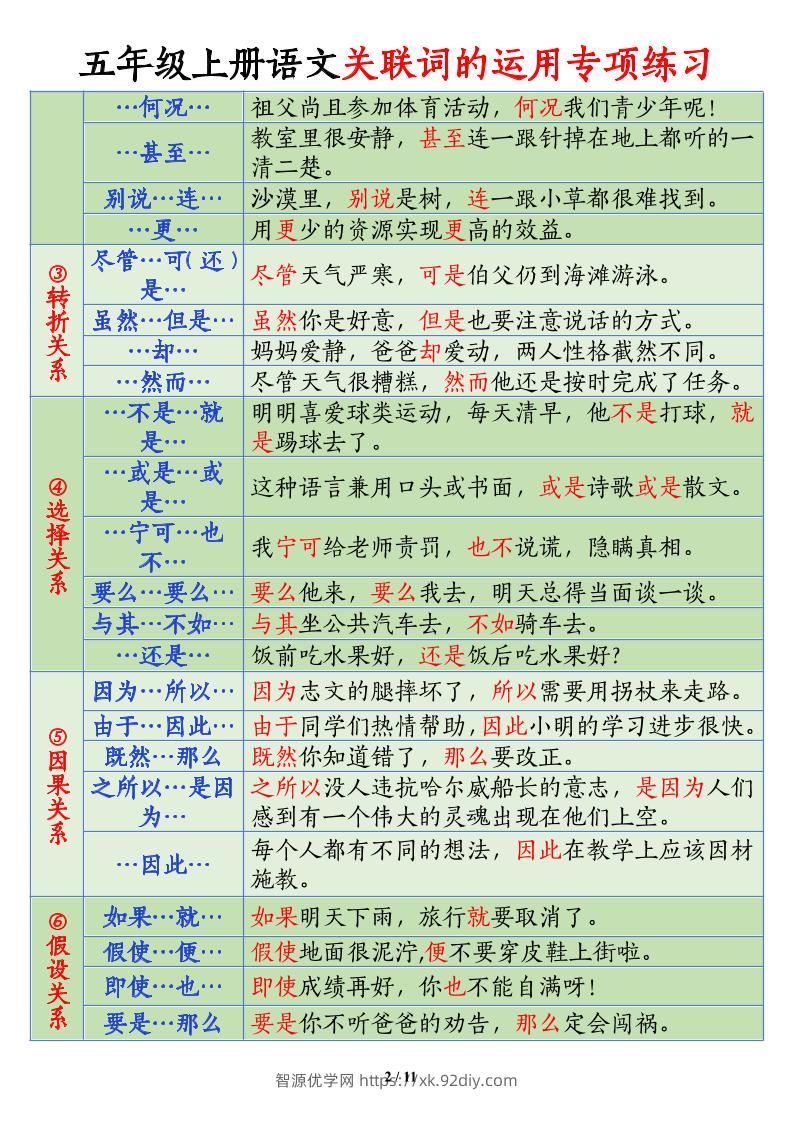 五年级上册语文关联词的运用专项练习
…何况… 祖父尚且参加体育活动，何况我们青少年呢！
…甚至… 教室里很安静，甚至连一跟针掉在地上都听的一
清二楚。
别说…连… 沙漠里，别说是树，连一跟小草都很难找到。
…更… 用更少的资源实现更高的效益。
③转折关系
尽管…可（还）
是… 尽管天气严寒，可是伯父仍到海滩游泳。
虽然…但是… 虽然你是好意，但是也要注意说话的方式。
…却… 妈妈爱静，爸爸却爱动，两人性格截然不同。
…然而… 尽管天气很糟糕，然而他还是按时完成了任务。
④选择关系
…不是…就
是… 明明喜爱球类运动，每天清早，他不是打球，就
是踢球去了。
…或是…或
是… 这种语言兼用口头或书面，或是诗歌或是散文。
…宁可…也
不… 我宁可给老师责罚，也不说谎，隐瞒真相。
要么…要么… 要么他来，要么我去，明天总得当面谈一谈。
与其…不如… 与其坐公共汽车去，不如骑车去。
…还是… 饭前吃水果好，还是饭后吃水果好？
⑤因果关系
因为…所以… 因为志文的腿摔坏了，所以需要用拐杖来走路。
由于…因此… 由于同学们热情帮助,因此小明的学习进步很快。
既然…那么 既然你知道错了，那么要改正。
之所以…是因
为… 之所以没人违抗哈尔威船长的意志，是因为人们
感到有一个伟大的灵魂出现在他们上空。
…因此… 每个人都有不同的想法，因此在教学上应该因材
施教。
⑥假设关系
如果…就… 如果明天下雨，旅行就要取消了。
假使…便… 假使地面很泥泞,便不要穿皮鞋上街啦。
即使…也… 即使成绩再好，你也不能自满呀！
要是…那么 要是你不听爸爸的劝告，那么定会闯祸。
2 / 11
智源优学网 https://xk.92diy.com